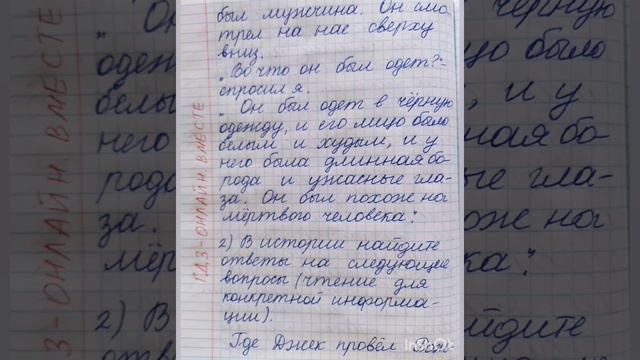 был мужчина. Он смо
трел на нас сверху
вниз.
„Во что он был одет?"-
спросил я.
„Он был одет в чёрную
одежду, и его лицо было
белым и худым, и у
него была длинная бо-
рода и ужасные гла-
за. Он был похож на
мёртвого человека."
2) В истории найдите
ответы на следующие
вопросы (чтение для
конкретной информа-
ции).
Где Джек провёл
ГДЗ-ОНЛАЙН ВМЕСТЕ